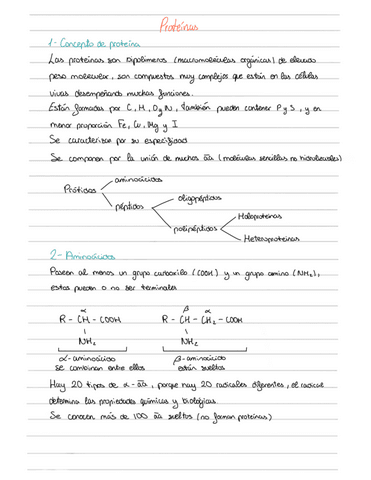 Proteínas
1- Concepto de proteína
Las proteínas son biopolímeros (macromoléculas orgánicas) de elevado
peso molecular, son compuestos muy complejos que están en las células
vivas desempeñando muchas funciones.
Están formadas por C, H, O y N, también pueden contener P y S, y en
menor proporción Fe, Cu, Mg y I
Se caracterizan por su especifidad
Se componen por la unión de muchos aa (moléculas sencillas no hidrolizables)
Prótidos
aminoácidos
péptidos
oligopéptidos
polipéptidos
Holoproteinas
Heteroproteinas
2- Aminoácidos
Poseen al menos un grupo carboxilo (COOH) y un grupo amino (NH2),
estos pueden o no ser terminales
α
R - CH - COOH
NH2
α-aminoácido
se combinan entre ellos
β α
R - CH - CH2 - COOH
NH2
β-aminoácido
están sueltos
Hay 20 tipos de α-aa, porque hay 20 radicales diferentes, el radical
determina las propiedades químicas y biológicas
Se conocen más de 100 aa sueltos (no forman proteínas)